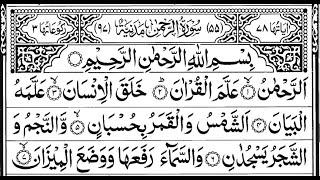 اٰیَاتُهَا ٧٨ (٥٥) سُوْرَةُ الرَّحْمٰنِ مَدَنِیَّةٌ (٩٧) رُكُوْعَاتُهَا ٣
بِسْمِ اللّٰهِ الرَّحْمٰنِ الرَّحِیْمِ
اَلرَّحْمٰنُ ۙ‏﴿١﴾ عَلَّمَ الْقُرْاٰنَ ؕ‏﴿٢﴾ خَلَقَ الْاِنْسَانَ ۙ‏﴿٣﴾ عَلَّمَهُ
الْبَیَانَ ﴿٤﴾ اَلشَّمْسُ وَالْقَمَرُ بِحُسْبَانٍ ﴿٥﴾ وَّالنَّجْمُ وَ
الشَّجَرُ یَسْجُدٰنِ ﴿٦﴾ وَالسَّمَآءَ رَفَعَهَا وَوَضَعَ الْمِیْزَانَ ﴿٧﴾